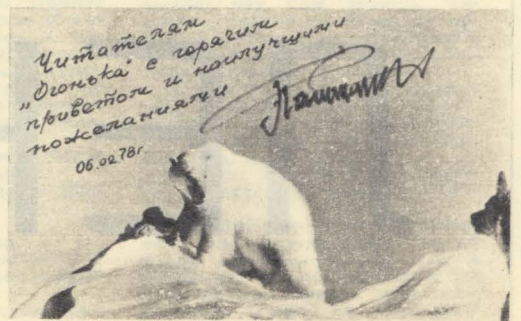 Читателям
„Огонька" с горячим
приветом и наилучшими
пожеланиями
06.02.78г.